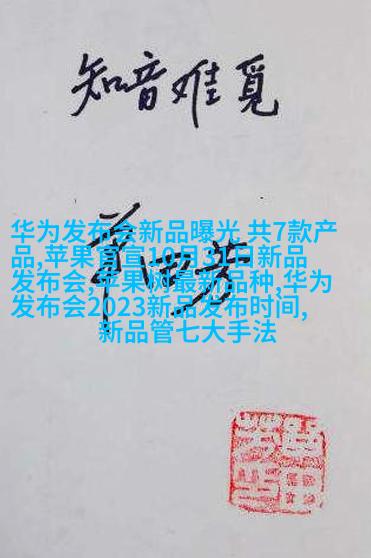 知音难觅
华为发布会新品曝光 共7款产
品,苹果官宣10月31日新品
发布会,苹果树最新品种,华为
发布会2023新品发布时间,
新品管七大手法